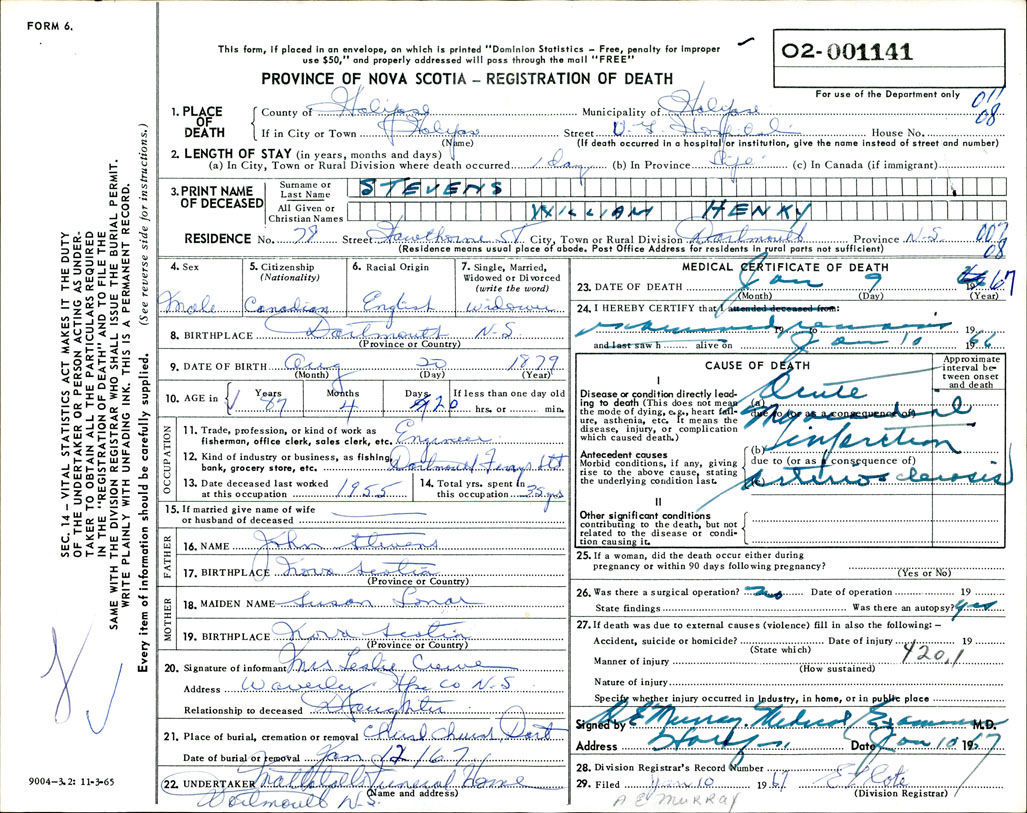 FORM 6.
This form, if placed in an envelope, on which is printed "Dominion Statistics – Free, penalty for improper
use $50," and properly addressed will pass through the mail "FREE"
PROVINCE OF NOVA SCOTIA – REGISTRATION OF DEATH
02-001141
For use of the Department only
011
08
SEC. 14 – VITAL STATISTICS ACT MAKES IT THE DUTY
OF THE UNDERTAKER OR PERSON ACTING AS UNDER-
TAKER TO OBTAIN ALL THE PARTICULARS REQUIRED
IN THE "REGISTRATION OF DEATH" AND TO FILE THE
SAME WITH THE DIVISION REGISTRAR WHO SHALL ISSUE THE BURIAL PERMIT.
WRITE PLAINLY WITH UNFADING INK. THIS IS A PERMANENT RECORD.
Every item of information should be carefully supplied. (See reverse side for instructions.)
1. PLACE OF DEATH
County of Halifax Municipality of Halifax
If in City or Town Halifax Street V.G. Hospital House No.
(Name) (If death occurred in a hospital or institution, give the name instead of street and number)
2. LENGTH OF STAY (in years, months and days)
(a) In City, Town or Rural Division where death occurred 1 day (b) In Province Life (c) In Canada (if immigrant)
3. PRINT NAME OF DECEASED
Surname or Last Name STEVENS
All Given or Christian Names WILLIAM HENRY
RESIDENCE No. 78 Street Hawthorne St. City, Town or Rural Division Dartmouth Province N.S.
(Residence means usual place of abode. Post Office Address for residents in rural parts not sufficient)
007
08
4. Sex Male
5. Citizenship (Nationality) Canadian
6. Racial Origin English
7. Single, Married, Widowed or Divorced (write the word) Widower
8. BIRTHPLACE Dartmouth N.S.
(Province or Country)
9. DATE OF BIRTH Aug 20 1879
(Month) (Day) (Year)
10. AGE in Years 87 Months 4 Days 20 If less than one day old hrs. or min.
OCCUPATION
11. Trade, profession, or kind of work as fisherman, office clerk, sales clerk, etc. Engineer
12. Kind of industry or business, as fishing, bank, grocery store, etc. Dartmouth Ferry
13. Date deceased last worked at this occupation 1955
14. Total yrs. spent in this occupation 35 yrs
15. If married give name of wife or husband of deceased
FATHER
16. NAME John Stevens
17. BIRTHPLACE Nova Scotia
(Province or Country)
MOTHER
18. MAIDEN NAME Susan
19. BIRTHPLACE Nova Scotia
(Province or Country)
20. Signature of informant Mrs Leslie Crewe
Address Waverley Hfx Co N.S
Relationship to deceased Daughter
21. Place of burial, cremation or removal Christ Church Dart
Date of burial or removal Jan 12 1967
22. UNDERTAKER Funeral Home
(Name and address)
Dartmouth N.S.
9004–3.2: 11-3-65
MEDICAL CERTIFICATE OF DEATH
23. DATE OF DEATH Jan 9 1967
(Month) (Day) (Year)
24. I HEREBY CERTIFY that I attended deceased from:
remains 19
to
and last saw h alive on Jan 10 1966
CAUSE OF DEATH
Approximate interval between onset and death
I
Disease or condition directly leading to death (This does not mean the mode of dying, e.g., heart failure, asthenia, etc. It means the disease, injury, or complication which caused death.)
(a) Acute Myocardial
due to (or as a consequence of)
(b) infarction
Antecedent causes
Morbid conditions, if any, giving rise to the above cause, stating the underlying condition last.
due to (or as a consequence of)
(c) arteriosclerosis
II
Other significant conditions
contributing to the death, but not related to the disease or condition causing it.
25. If a woman, did the death occur either during
pregnancy or within 90 days following pregnancy?
(Yes or No)
26. Was there a surgical operation? no Date of operation 19
State findings Was there an autopsy? yes
27. If death was due to external causes (violence) fill in also the following: –
Accident, suicide or homicide? Date of injury 19
(State which)
420.1
Manner of injury
(How sustained)
Nature of injury
Specify whether injury occurred in Industry, in home, or in public place
Signed by A E Murray, Medical Examiner M.D.
Address Hfx Date Jan 10 1967
28. Division Registrar's Record Number
29. Filed Jan 10 1967
(Division Registrar)
A E MURRAY